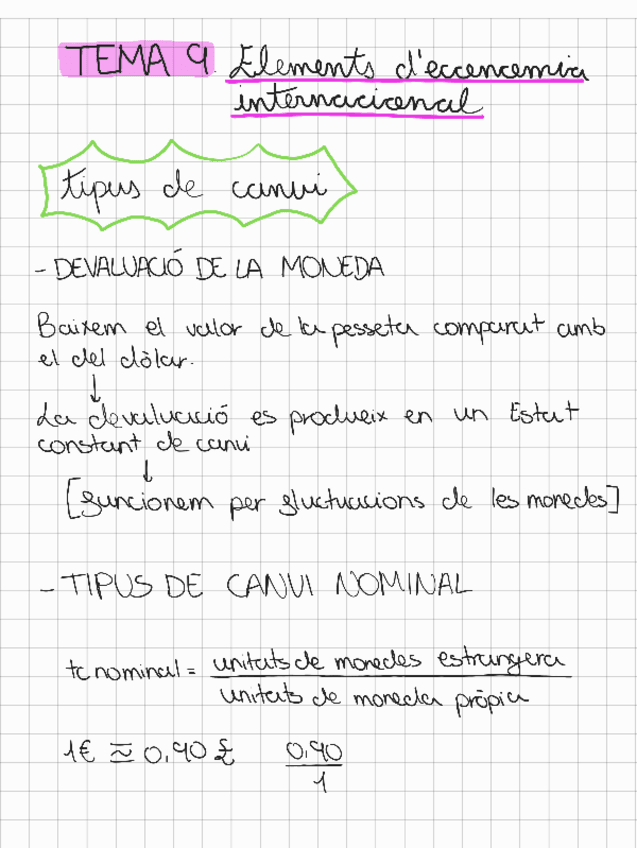 TEMA 9. Elements d'economia
internacional
tipus de canvi
- DEVALUACIÓ DE LA MONEDA
Baixem el valor de la pesseta comparat amb
el del dòlar.
↓
La devaluació es produeix en un Estat
constant de canvi
↓
[funcionem per fluctuacions de les monedes]
- TIPUS DE CANVI NOMINAL
tc nominal = unitats de monedes estrangera
unitats de moneda pròpia
1€ ≂ 0,90 £ 0,90
1